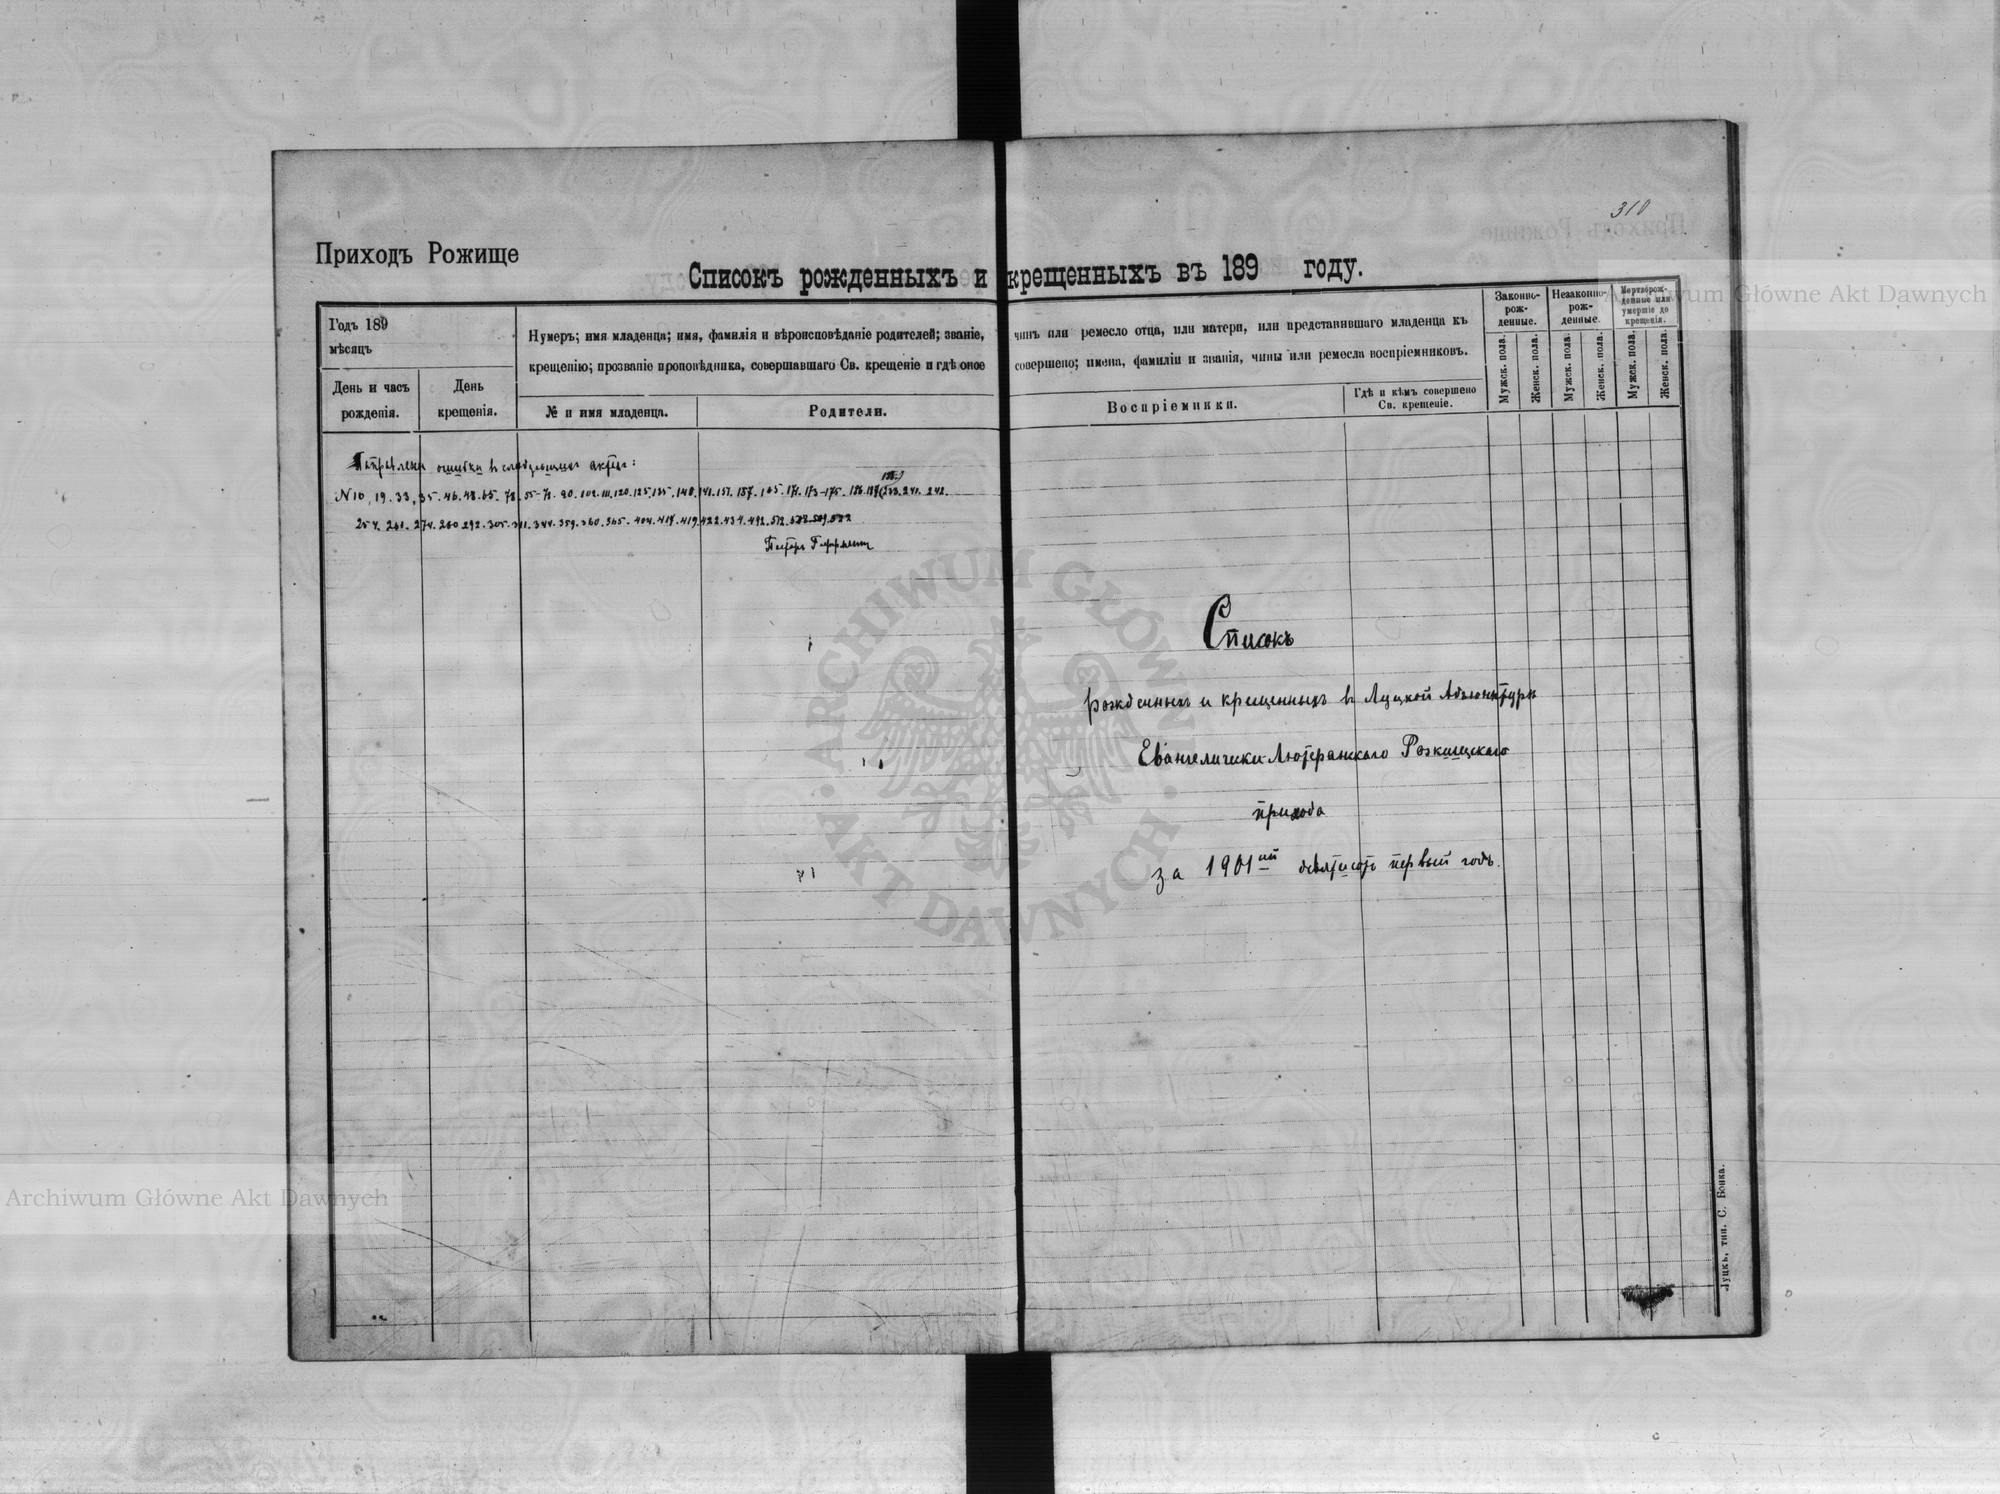 310
Приходъ Рожище
Списокъ рожденныхъ и крещенныхъ въ 189 году.
Годъ 189
мѣсяцъ
День и часъ рожденія.
День крещенія.
Нумеръ; имя младенца; имя, фамилія и вѣроисповѣданіе родителей; званіе, чинъ или ремесло отца, или матери, или представившаго младенца къ
крещенію; прозваніе проповѣдника, совершавшаго Св. крещеніе и гдѣ оное совершено; имена, фамиліи и званія, чины или ремесла воспріемниковъ.
№ и имя младенца.
Родители.
Воспріемники.
Гдѣ и кѣмъ совершено Св. крещеніе.
Законно-рож-денные.
Незаконно-рож-денные.
Мертворож-денные или умершіе до крещенія.
Мужск. пола.
Женск. пола.
Мужск. пола.
Женск. пола.
Мужск. пола.
Женск. пола.
ошибки въ актахъ:
N 10, 19. 33, 35. 46. 48. 65. 90. 102. 111. 120. 125. 135. 140. 141. 151. 157. 165. 171. 173-175. 241. 242.
254. 261. 274. 280 292. 305. 311. 344. 359. 360. 365. 404. 417. 419. 422. 434. 492.
Пасторъ
Списокъ
рожденныхъ и крещенныхъ въ Луцкой Адъюнктурѣ
Евангелическо-Лютеранскаго Рожищскаго
прихода
за 1901ый девятисотъ первый годъ.
Луцкъ, тип. С. Бонка.
Archiwum Główne Akt Dawnych
ARCHIWUM GŁÓWNE AKT DAWNYCH
Archiwum Główne Akt Dawnych